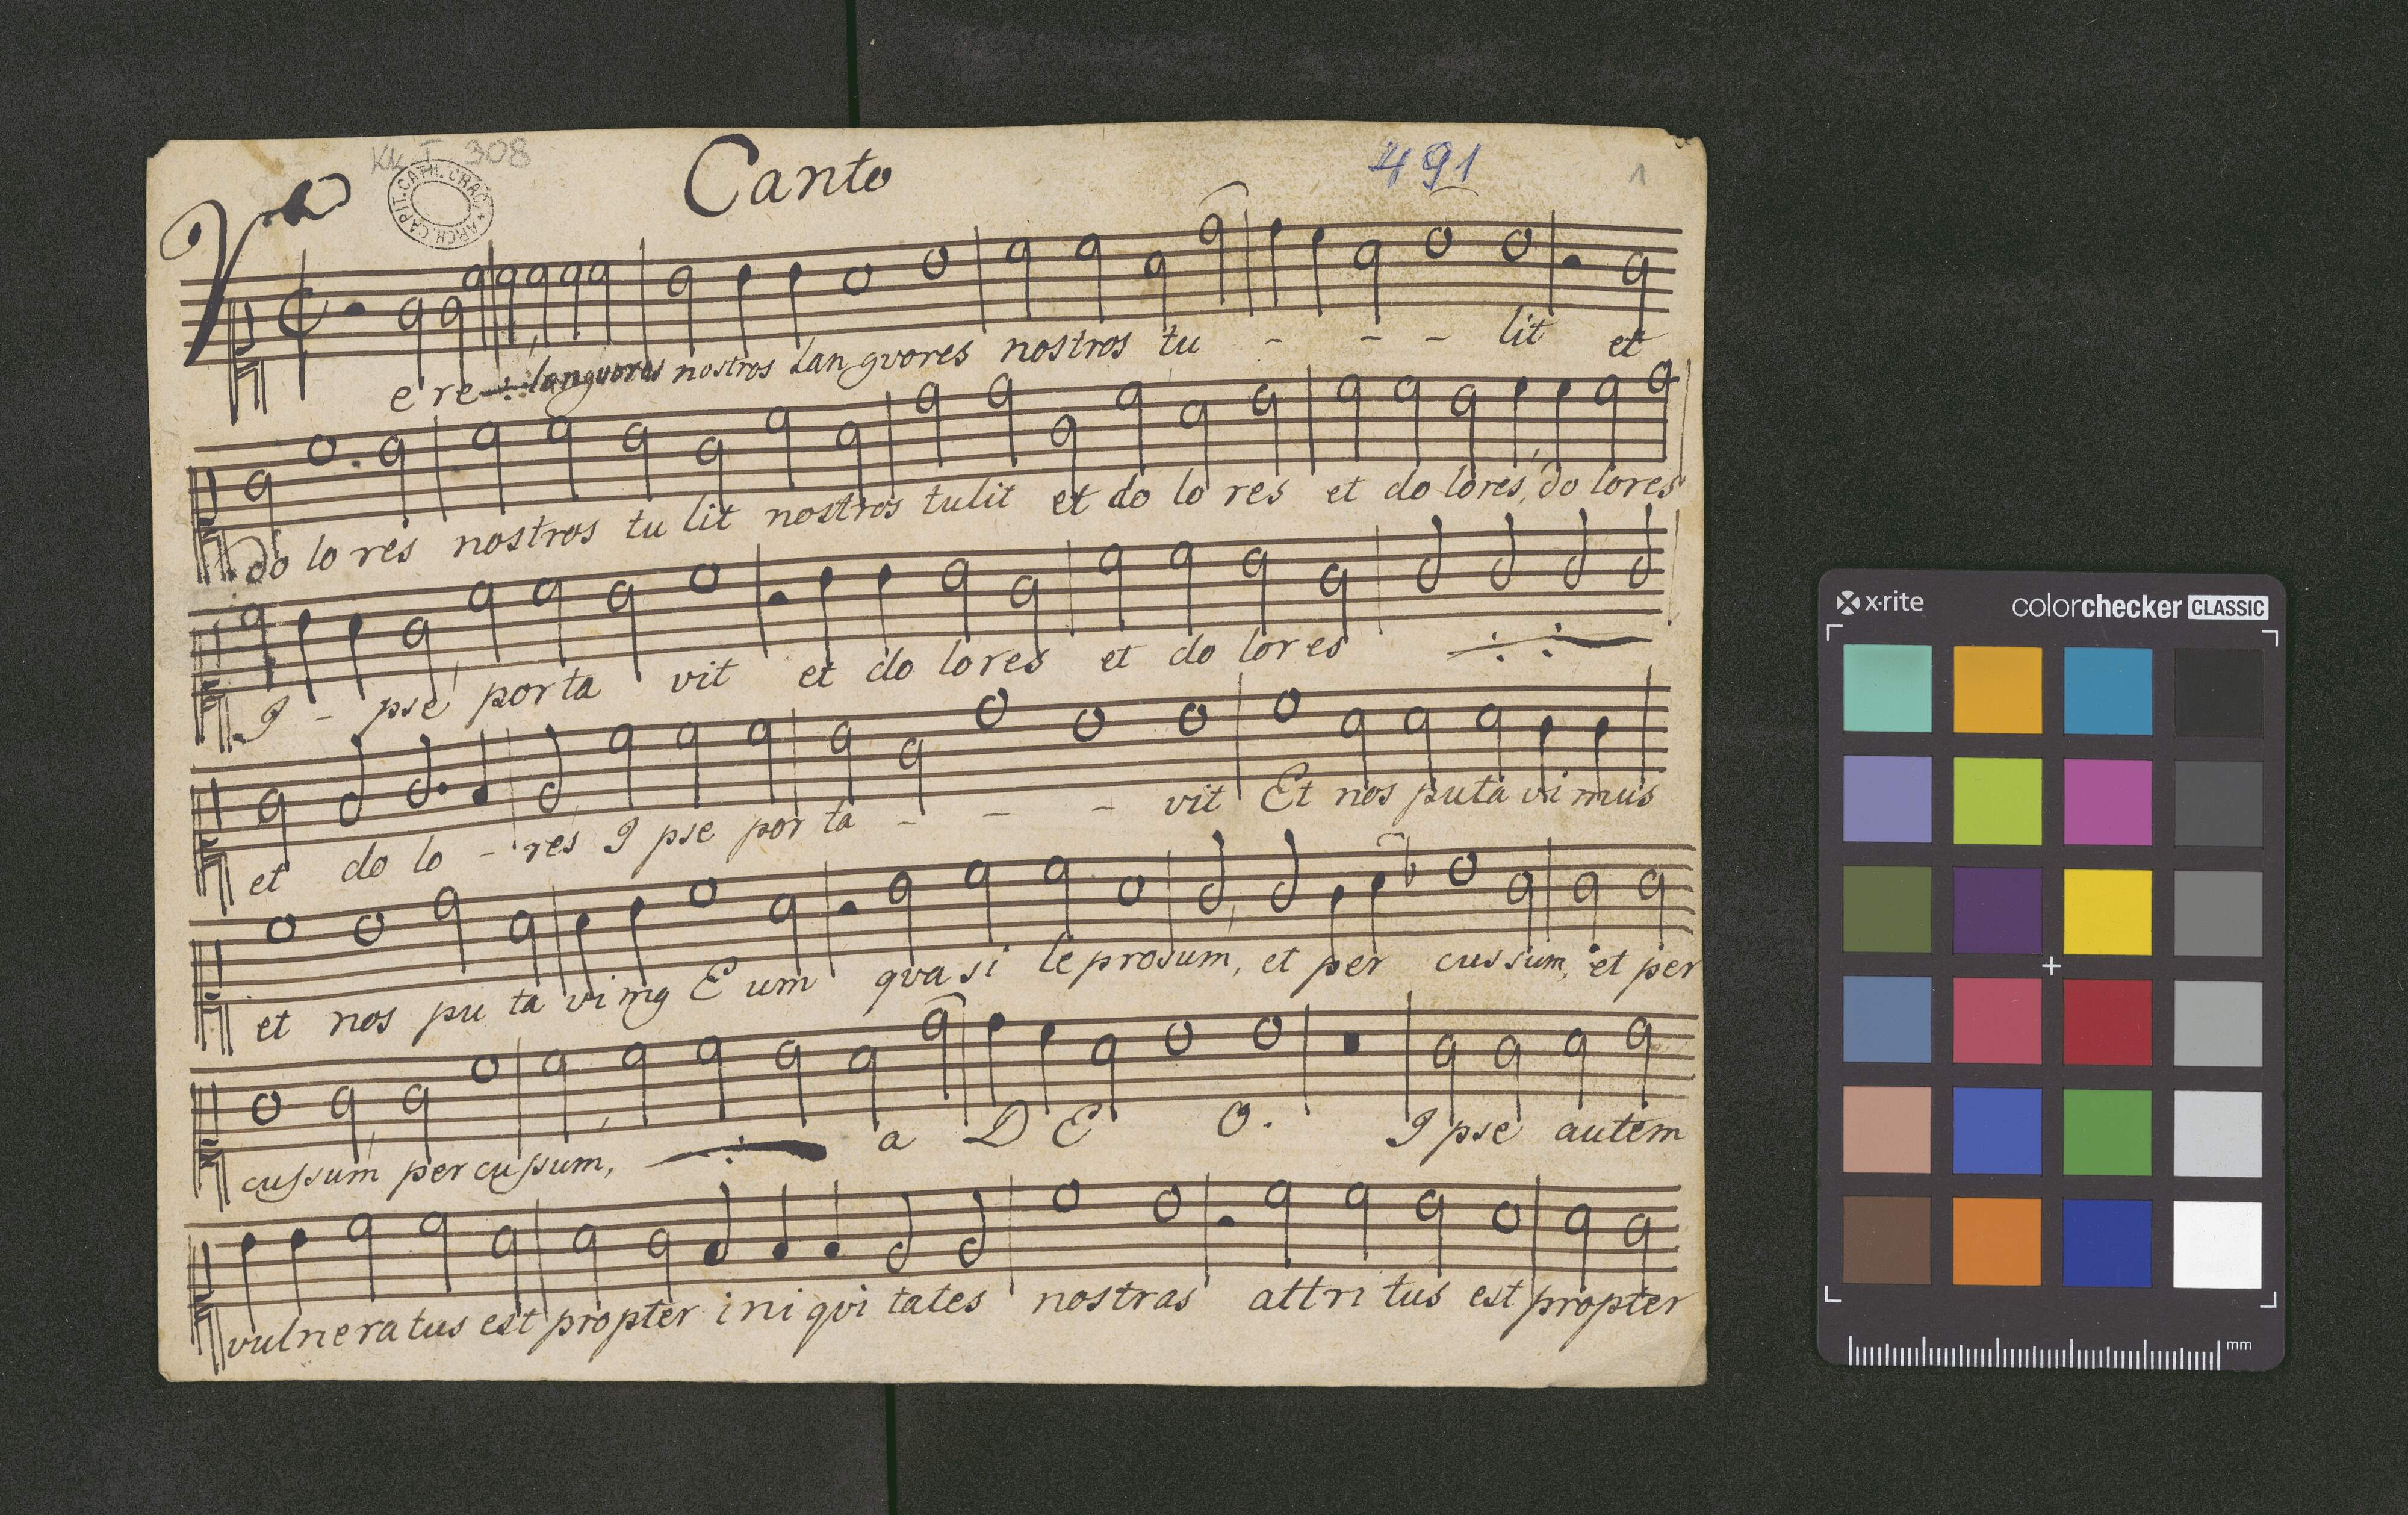 Kk I 308
Canto
491
1
ARCH. CAPIT. CATH. CRAC.
Vere languores nostros languores nostros tu - - - lit et
dolores nostros tulit nostros tulit et dolores et dolores, dolores
Ipse portavit et dolores et dolores
et dolo - res Ipse porta - - - vit Et nos putavimus
et nos putavimq Eum quasi leprosum, et per cussum, et per
cussum percussum, a DEO. Ipse autem
vulneratus est propter iniqvitates nostras attritus est propter
x·rite
colorchecker CLASSIC
mm